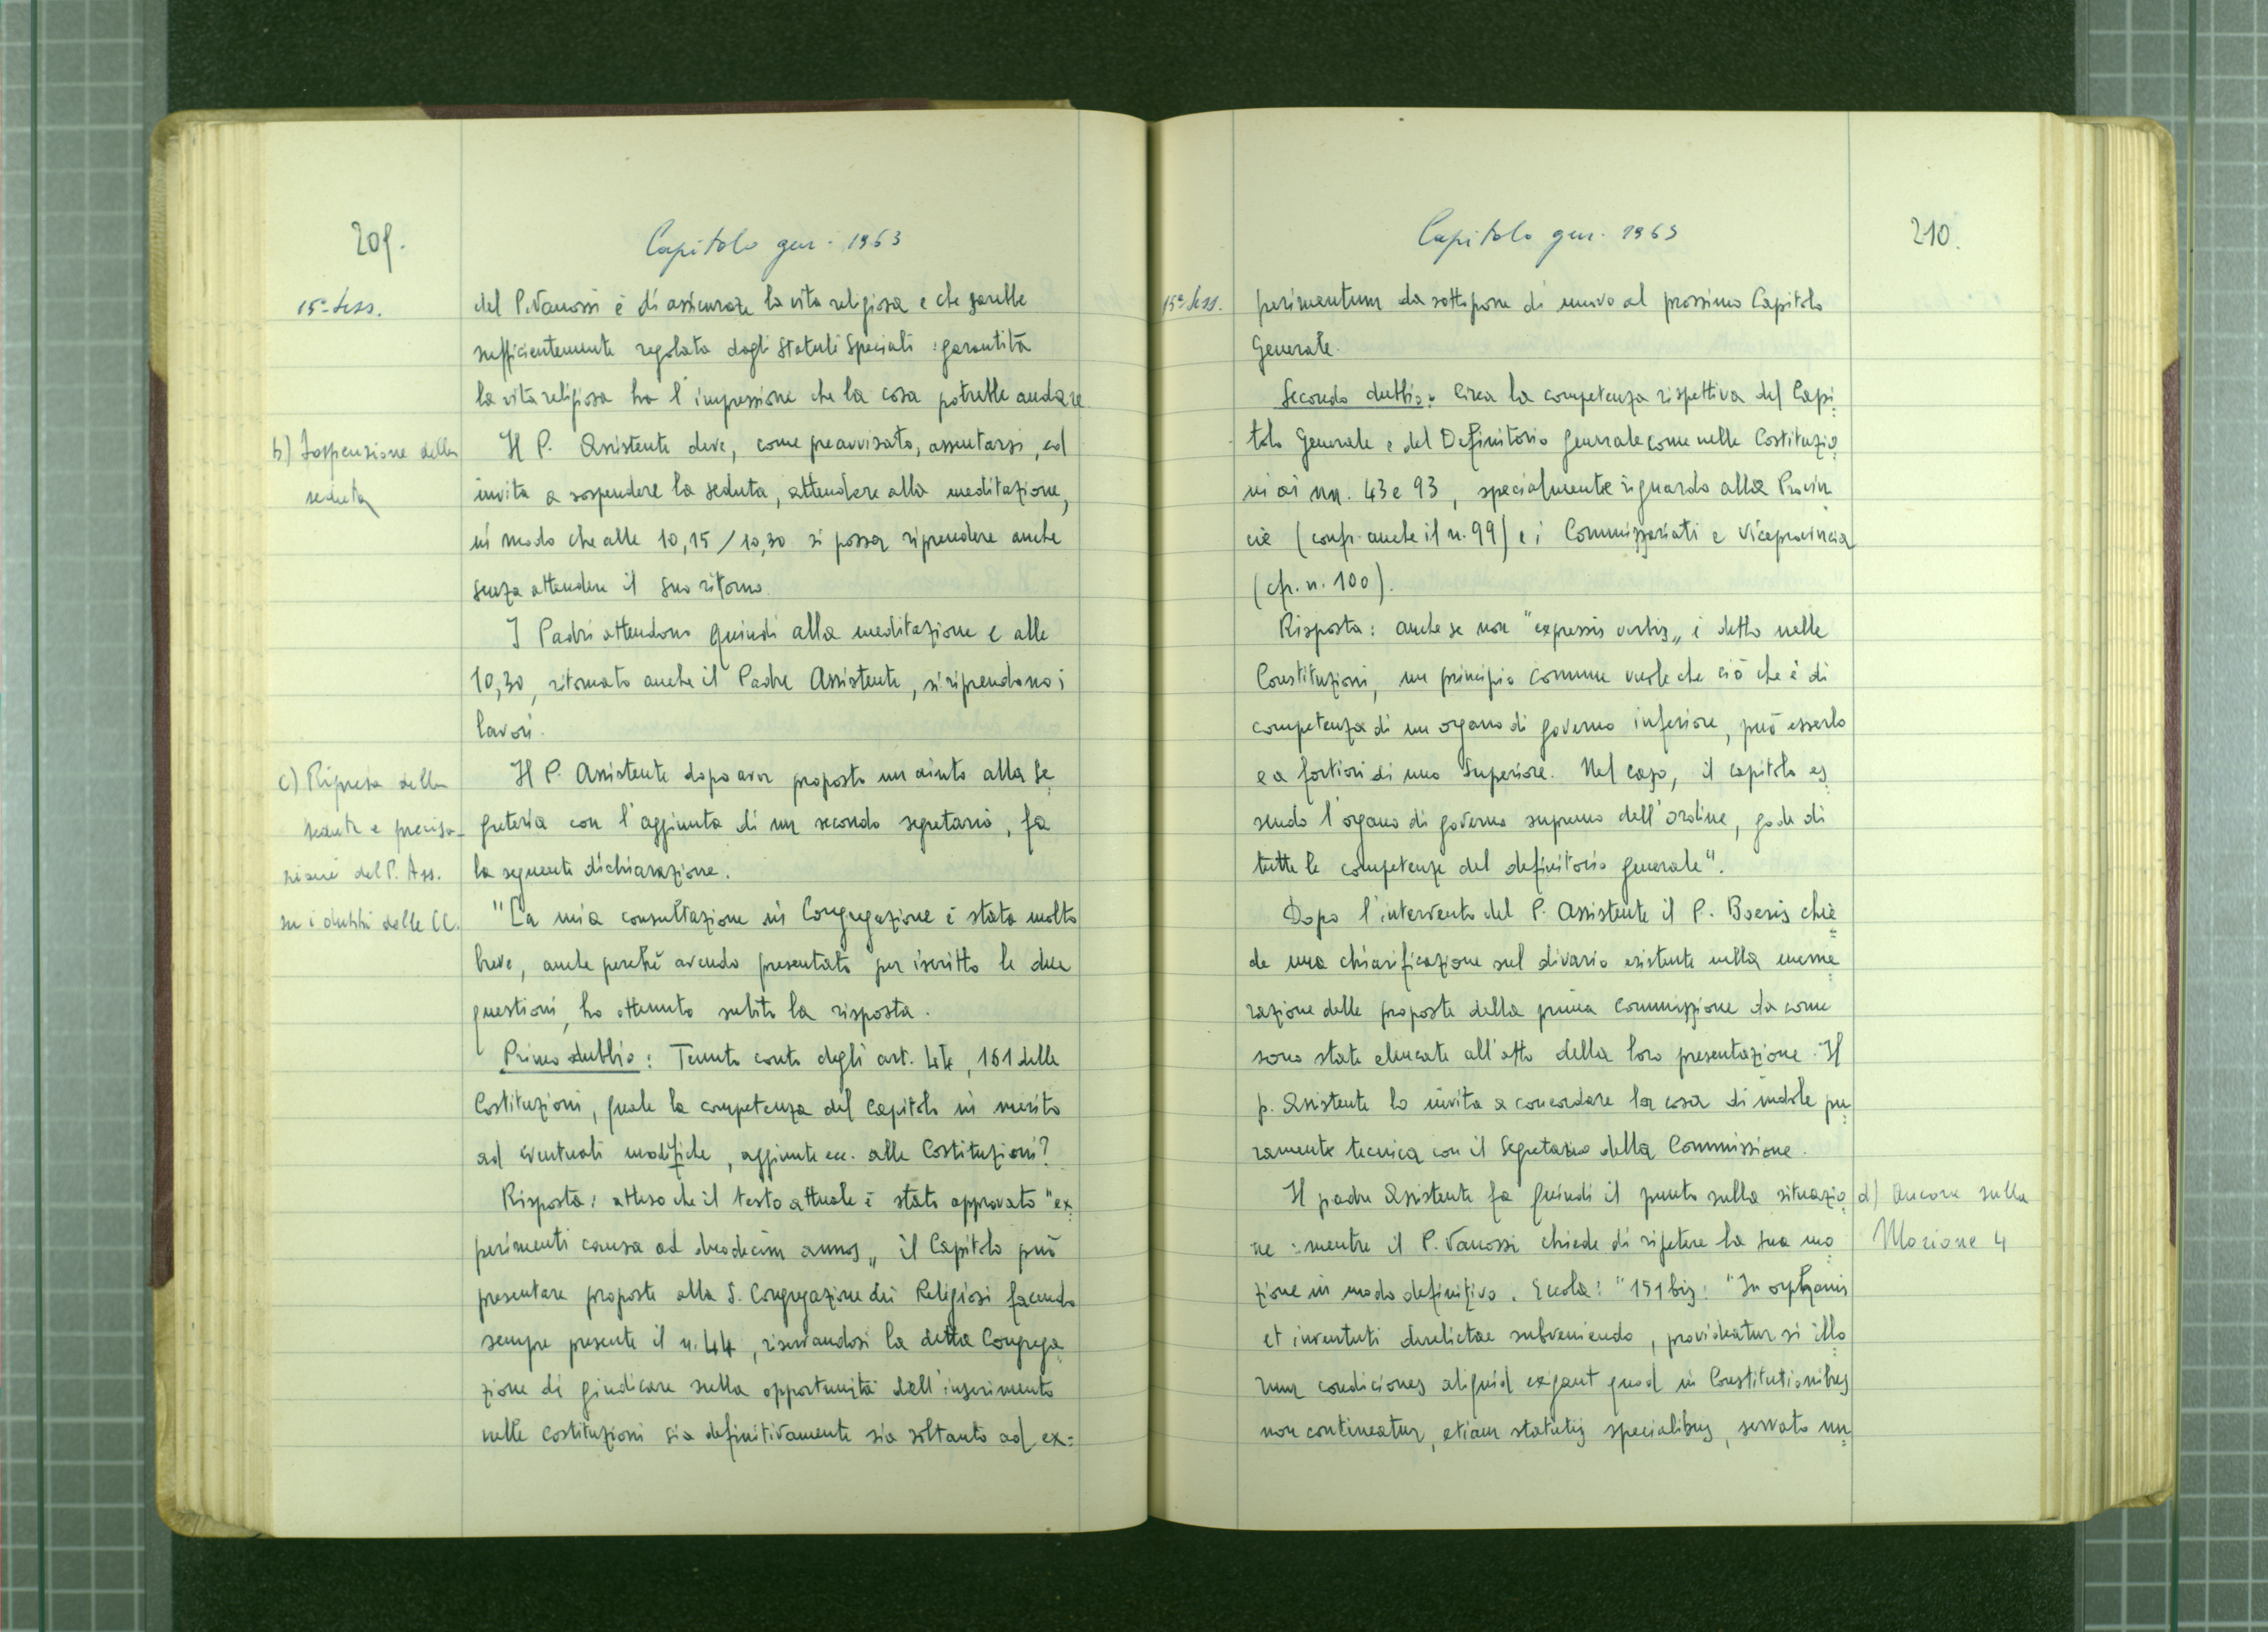 209.
Capitolo gen. 1963
15ª Sess.
del P. Vanossi è di assicurare la vita religiosa e che sarebbe
sufficientemente regolata dagli Statuti Speciali : garantita
la vita religiosa ha l'impressione che la cosa potrebbe andare
b) Sospensione della
seduta
Il P. Assistente deve, come preavvisato, assentarsi, ed
invita a sospendere la seduta, attendere alla meditazione,
in modo che alle 10,15/10,30 si possa riprendere anche
senza attendere il suo ritorno.
I Padri attendono quindi alla meditazione e alle
10,30, ritornato anche il Padre Assistente, si riprendono i
lavori.
c) Ripresa della
seduta e precisa-
zioni del P. Ass.
su i dubbi delle CC.
Il P. Assistente dopo aver proposto un aiuto alla Se=
greteria con l'aggiunta di un secondo segretario, fa
la seguente dichiarazione.
"La mia consultazione in Congregazione è stata molto
breve, anche perchè avendo presentato per iscritto le due
questioni, ho ottenuto subito la risposta.
Primo dubbio: Tenuto conto degli art. 44, 161 delle
Costituzioni, quale la competenza del Capitolo in merito
ad eventuali modifiche, aggiunte ecc. alle Costituzioni?
Risposta: atteso che il testo attuale è stato approvato "ex=
perimenti causa ad duodecim annos„ il Capitolo può
presentare proposte alla S. Congregazione dei Religiosi facendo
sempre presente il n. 44, riservandosi la detta Congrega=
zione di giudicare sulla opportunità dell'inserimento
nelle Costituzioni sia definitivamente sia soltanto ad ex=
Capitolo gen. 1963
210.
15ª Sess.
perimentum da sottoporre di nuovo al prossimo Capitolo
Generale.
Secondo dubbio: Circa la competenza rispettiva del Capi=
tolo Generale e del Definitorio generale come nelle Costituzio=
ni ai nn. 43 e 93, specialmente riguardo alla Provin=
cie (confr. anche il n. 99) e i Commissariati e Viceprovincia
(cfr. n. 100).
Risposta: anche se non "expressis verbis„ è detto nelle
Constituzioni, un principio comune vuole che ciò che è di
competenza di un organo di governo inferiore, può esserlo
e a fortiori di uno Superiore. Nel caso, il capitolo es=
sendo l'organo di governo supremo dell'ordine, gode di
tutte le competenze del definitorio generale".
Dopo l'intervento del P. Assistente il P. Boeris chie=
de una chiarificazione sul divario esistente nella enume=
razione delle proposte della prima Commissione da come
sono state elencate all'atto della loro presentazione. Il
p. Assistente lo invita a concordare la cosa di indole pu=
ramente tecnica con il Segretario della Commissione.
d) Ancora sulla
Mozione 4
Il padre Assistente fa quindi il punto sulla situazio=
ne : mentre il P. Vanossi chiede di ripetere la sua mo=
zione in modo definitivo. Eccola: "151 bis: "In orphanis
et inventuti derelictae subveniendo, provideatur si illo=
rum condiciones aliquid exigant quod in Constitutionibus
non contineatur, etiam statutis specialibus, servato nu=